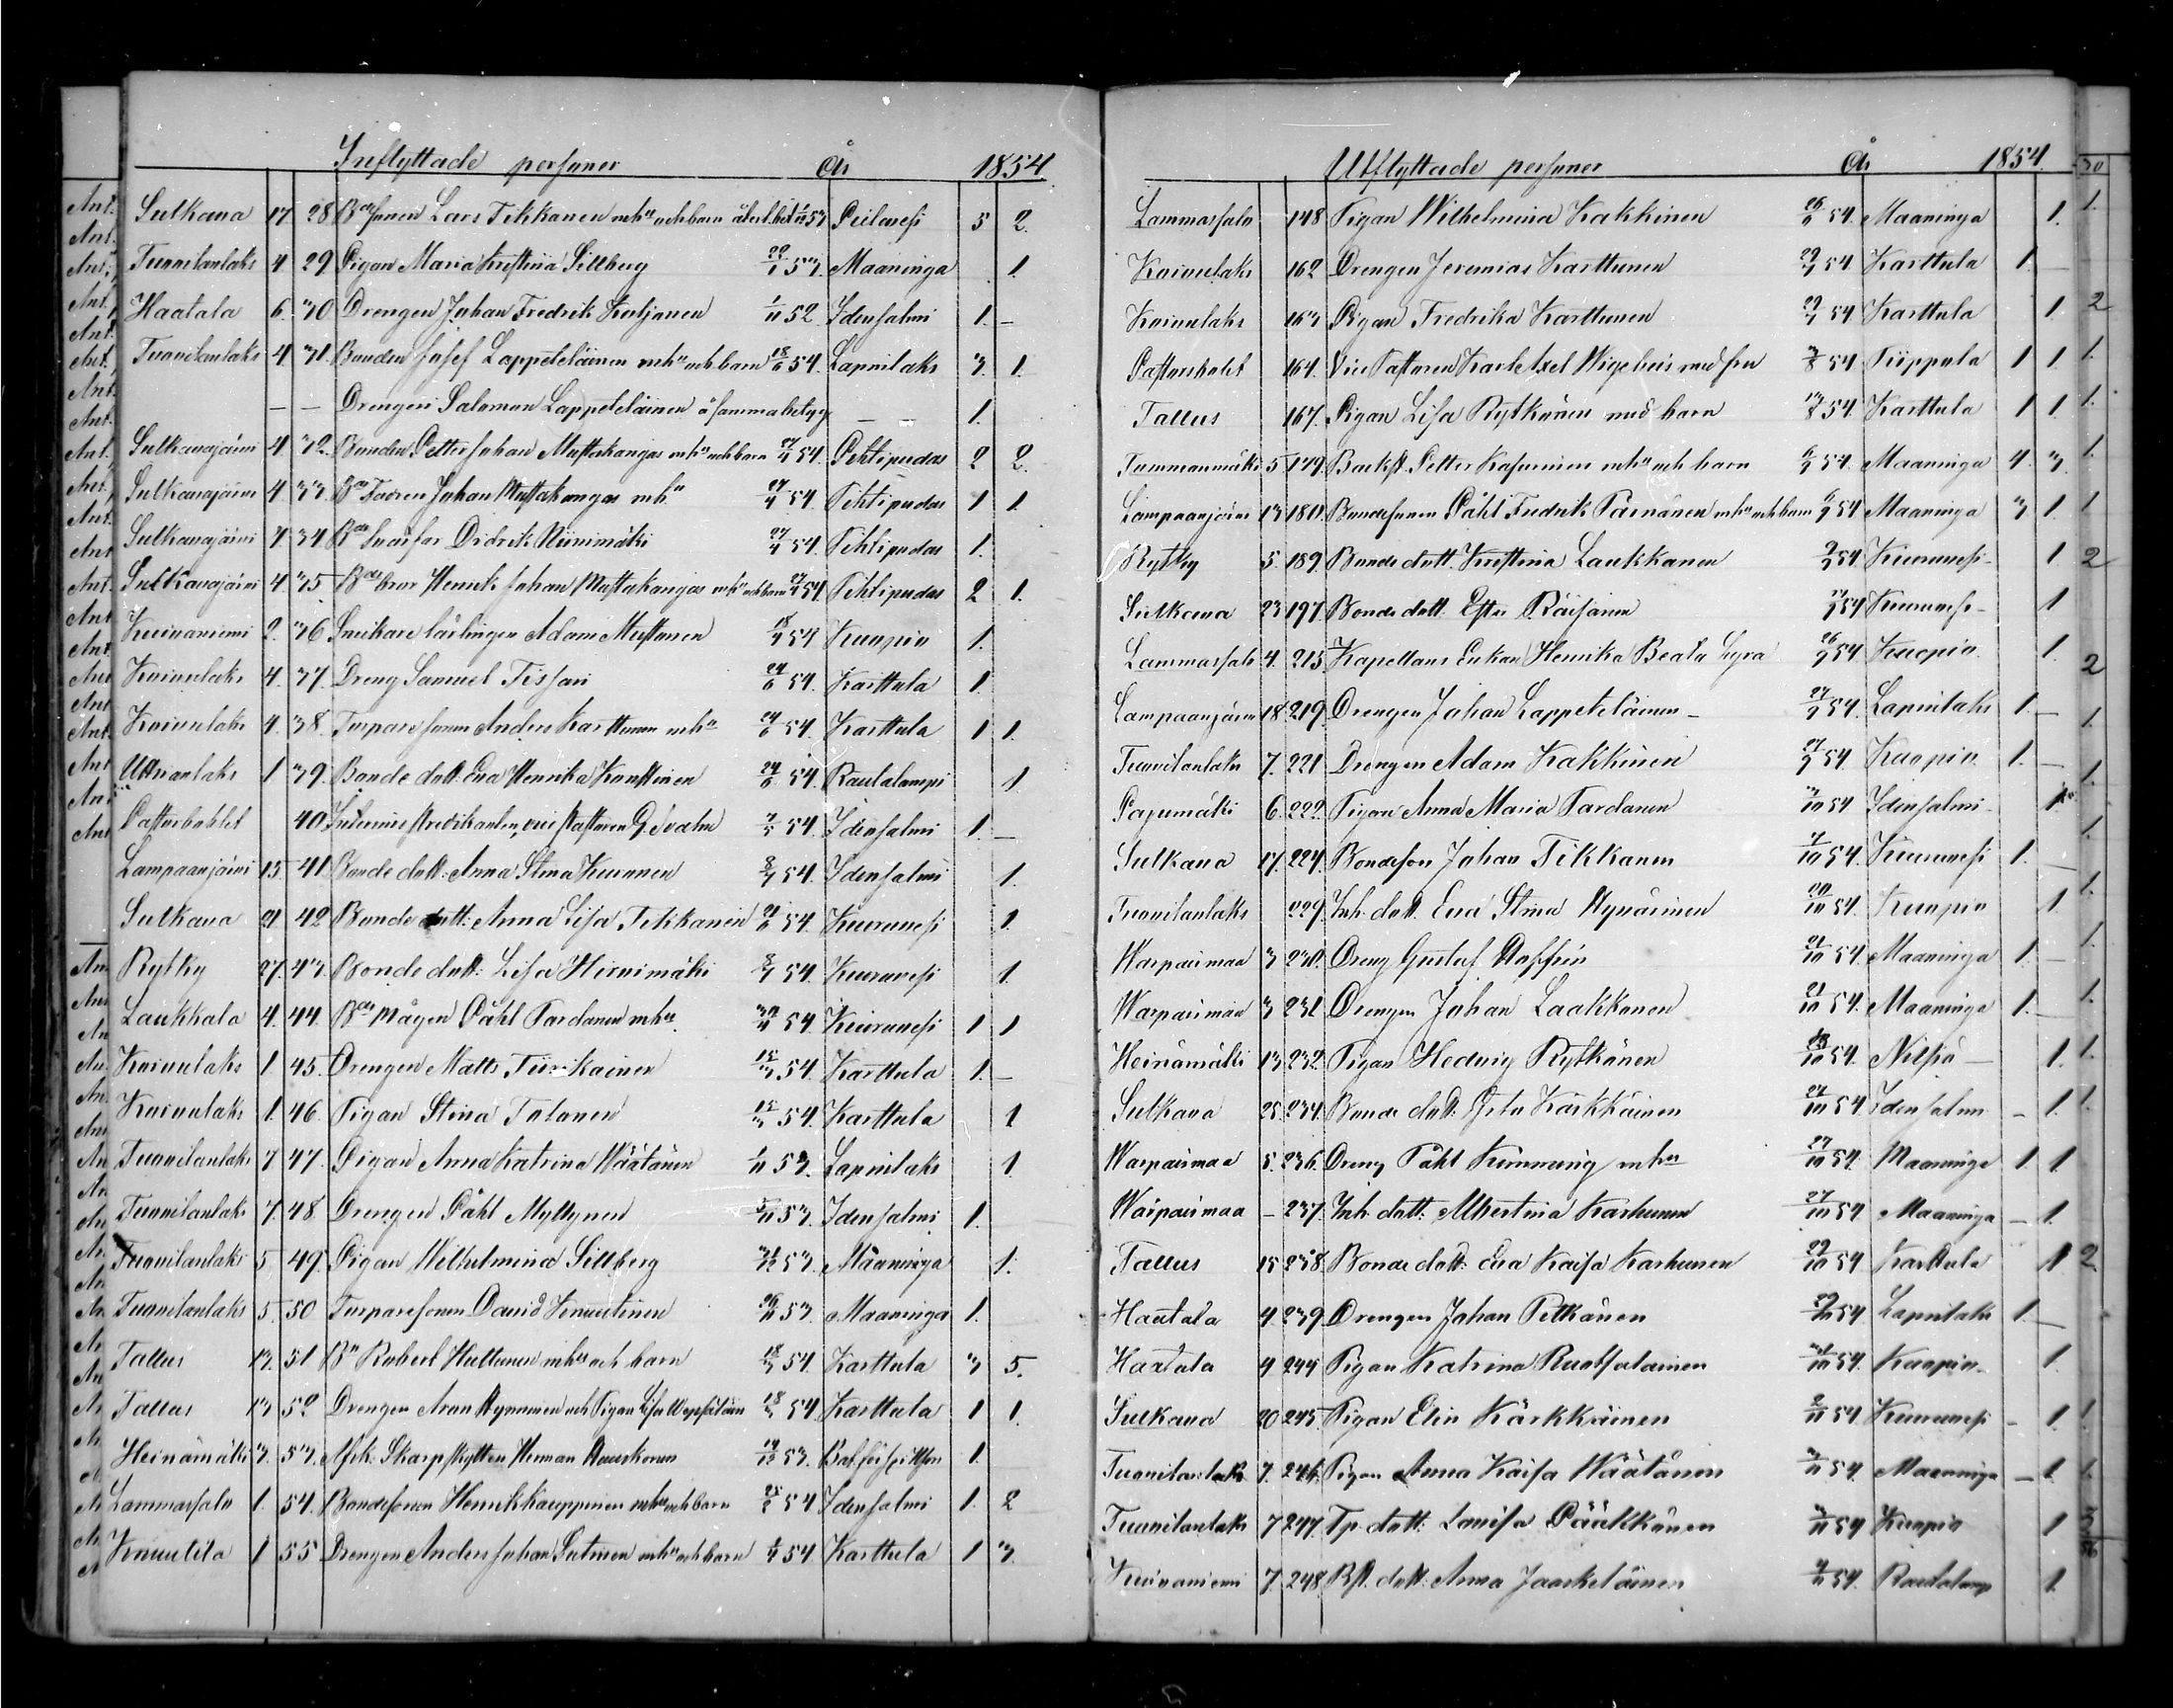 Inflyttade personer År 1854
Sulkava 17 28 Bdesonen Lars Tikkanen mhu och barn Pielavesi 5 2.
Tuovilanlaks 4 29 Pigan Maria Kristina Sillberg 53 Maaninga 1.
Haatala 6. 30 Drengen Johan Fredrik Kuljanen 1/11 52. Idensalmi 1. –
Tuovilanlaks 4 31. Bonden Josef Lappeteläinen mhu och barn 18/6 54. Lapinlaks 3. 1.
– – Drengen Salomon Lappeteläinen å samma betyg – – 1.
Sulkavajärvi 4 32. Bonden Petter Johan Mustakangas mhu och barn 27/4 54. Pihtipudas 2 2.
Sulkavajärvi 4. 33. Bde Fadren Johan Mustakangas mhu 27/4 54. Pihtipudas 1 1.
Sulkavajärvi 4 34 Bde Svärfar Didrik Niinimäki 27/4 54. Pihtipudas 1.
Sulkavajärvi 4. 35 Bde bror Henrik Johan Mustakangas mhu och barn 27/4 54. Pihtipudas 2 1.
Kuivaniemi 2. 36 Snickare lärlingen Adam Mustonen 18/4 54 Kuopio 1.
Koivulaks 4. 37. Dreng Samuel Tissari 24/6 54. Karttula 1.
Koivulaks 4. 38. Torparesonen Anders Karttunen mhu 24/6 54. Karttula 1 1.
Uttrianlaks 1 39. Bonde dott. Eva Henrika Konttinen 24/6 54. Rautalampi 1
Pastorbohlet 40. vice Pastoren 7/5 54. Idensalmi 1. –
Lampaanjärvi 15. 41. Bonde dott. Anna Stina Kumonen 8/7 54. Idensalmi 1.
Sulkava 21 42 Bonde dott. Anna Lisa Tikkanen 21/6 54. Kiuruvesi 1.
Rytky 27. 43. Bonde dott. Lisa Hirvimäki 8/7 54. Kiuruvesi 1.
Laukkala 4. 44. Bde Mågen Påhl Tardanen mhu. 54. Kiuruvesi 1 1
Koivulaks 1 45. Drengen Matts Tiirikainen 15/3 54. Karttula 1. –
Koivulaks 1. 46. Pigan Stina Tolonen 15/3 54. Karttula 1
Tuovilanlaks 7 47. Pigan Anna Katrina Väätänen 1/11 53. Lapinlaks 1
Tuovilanlaks 7. 48. Drengen Påhl Myllynen 5/11 53. Idensalmi 1.
Tuovilanlaks 5 49. Pigan Wilhelmina Sillberg 53. Maaninga 1.
Tuovilanlaks 5. 50 Torparesonen David Knuutinen 26/11 53. Maaninga 1.
Tallus 13. 51 Bn Robert Huttunen mhu och barn 18/3 54. Karttula 3 5.
Tallus 13 52 Drengen Aron Hynninen och Pigan Lisa 18/3 54 Karttula 1 1.
Heinämäki 3. 53. Afsk. Skarpskytten Herman Hauskonen 19/12 53. 1.
Lammassalo 1. 54. Bondesonen Henrik Kauppinen mhu och barn 54 Idensalmi 1. 2
Knuutila 1 55 Drengen Anders Johan Sutinen mhu och barn 54 Karttula 1 3
Utflyttade personer År 1854.
Lammassalo 148 Pigan Wilhelmina Kakkinen 54. Maaninga 1.
Koivulaks 162 Drengen Jeremias Karttunen 29/7 54 Karttula 1. –
Koivulaks 163 Pigan Fredrika Karttunen 29/7 54. Karttula 1.
Pastorbohlet 164. Vice Pastoren Karl Axel Wigelius med fru 3/8 54 Piippola 1 1.
Tallus 167. Pigan Lisa Rytkönen med barn 54. Karttula 1 1.
Tammanmäki 5 179 Backst. Petter Kasurinen mhu och barn 6/9 54. Maaninga 4. 3.
Lampaanjärvi 13 180. Bondesonen Påhl Fredrik Pärnänen mhu och barn 6/9 54 Maaninga 3 1.
Rytky 5. 189. Bonde dott. Kristina Laukkanen 9/9 54. Kiuruvesi – 1.
Sulkava 23 197. Bonde dott. Ester Räisänen 54 Kiuruvesi – 1
Lammassalo 4. 215. Kapellans Enkan Henrika Beata Lyra 26/9 54 Kuopio 1.
Lampaanjärvi 18. 219. Drengen Johan Lappeteläinen – 27/9 54. Lapinlaks 1. –
Tuovilanlaks 7. 221 Drengen Adam Kakkinen 27/9 54. Kuopio 1. –
Pajumäki 6. 222. Pigan Anna Maria Tardanen 3/10 54 Idensalmi – 1.
Sulkava 17. 224. Bondeson Johan Tikkanen 7/10 54. Kiuruvesi 1.
Tuovilanlaks 229. Inh. dott. Eva Stina Hynärinen 20/10 54. Kuopio 1.
Warpaismaa 3 230. Dreng Gustaf Hoffrén 21/10 54. Maaninga 1. –
Warpaismaa 3 231 Drengen Johan Laakkonen 21/10 54. Maaninga 1. –
Heinämäki 13. 232. Pigan Hedwig Rytkönen 54. Nilsiä – 1.
Sulkava 25. 234. Bonde dott. Greta Kärkkäinen 27/10 54. Idensalmi – 1.
Warpaismaa 5. 236. Dreng Påhl Kumming mhu 27/10 54. Maaninga 1. 1.
Warpaismaa – 237. Inh. dott. Albertina Karhunen 27/10 54 Maaninga – 1.
Tallus 15 238. Bonde dott. Eva Kaisa Karhunen 29/10 54 Karttula 1
Haatala 4. 239 Drengen Johan Pitkänen 29/10 54 Lapinlaks 1. –
Haatala 4 244 Pigan Katrina Ruotsalainen 54 Kuopio – 1.
Sulkava 20 245. Pigan Elin Kärkkäinen 2/11 54 Kiuruvesi – 1.
Tuovilanlaks 7. 246. Pigan Anna Kaisa Väätänen 54. Maaninga – 1.
Tuovilanlaks 7 247. Tp. dott. Lovisa Pääkkönen 54 Kuopio 1
Kuivaniemi 7. 248. Bst. dott. Anna Jaaskeläinen 54. Rautalamp 1.